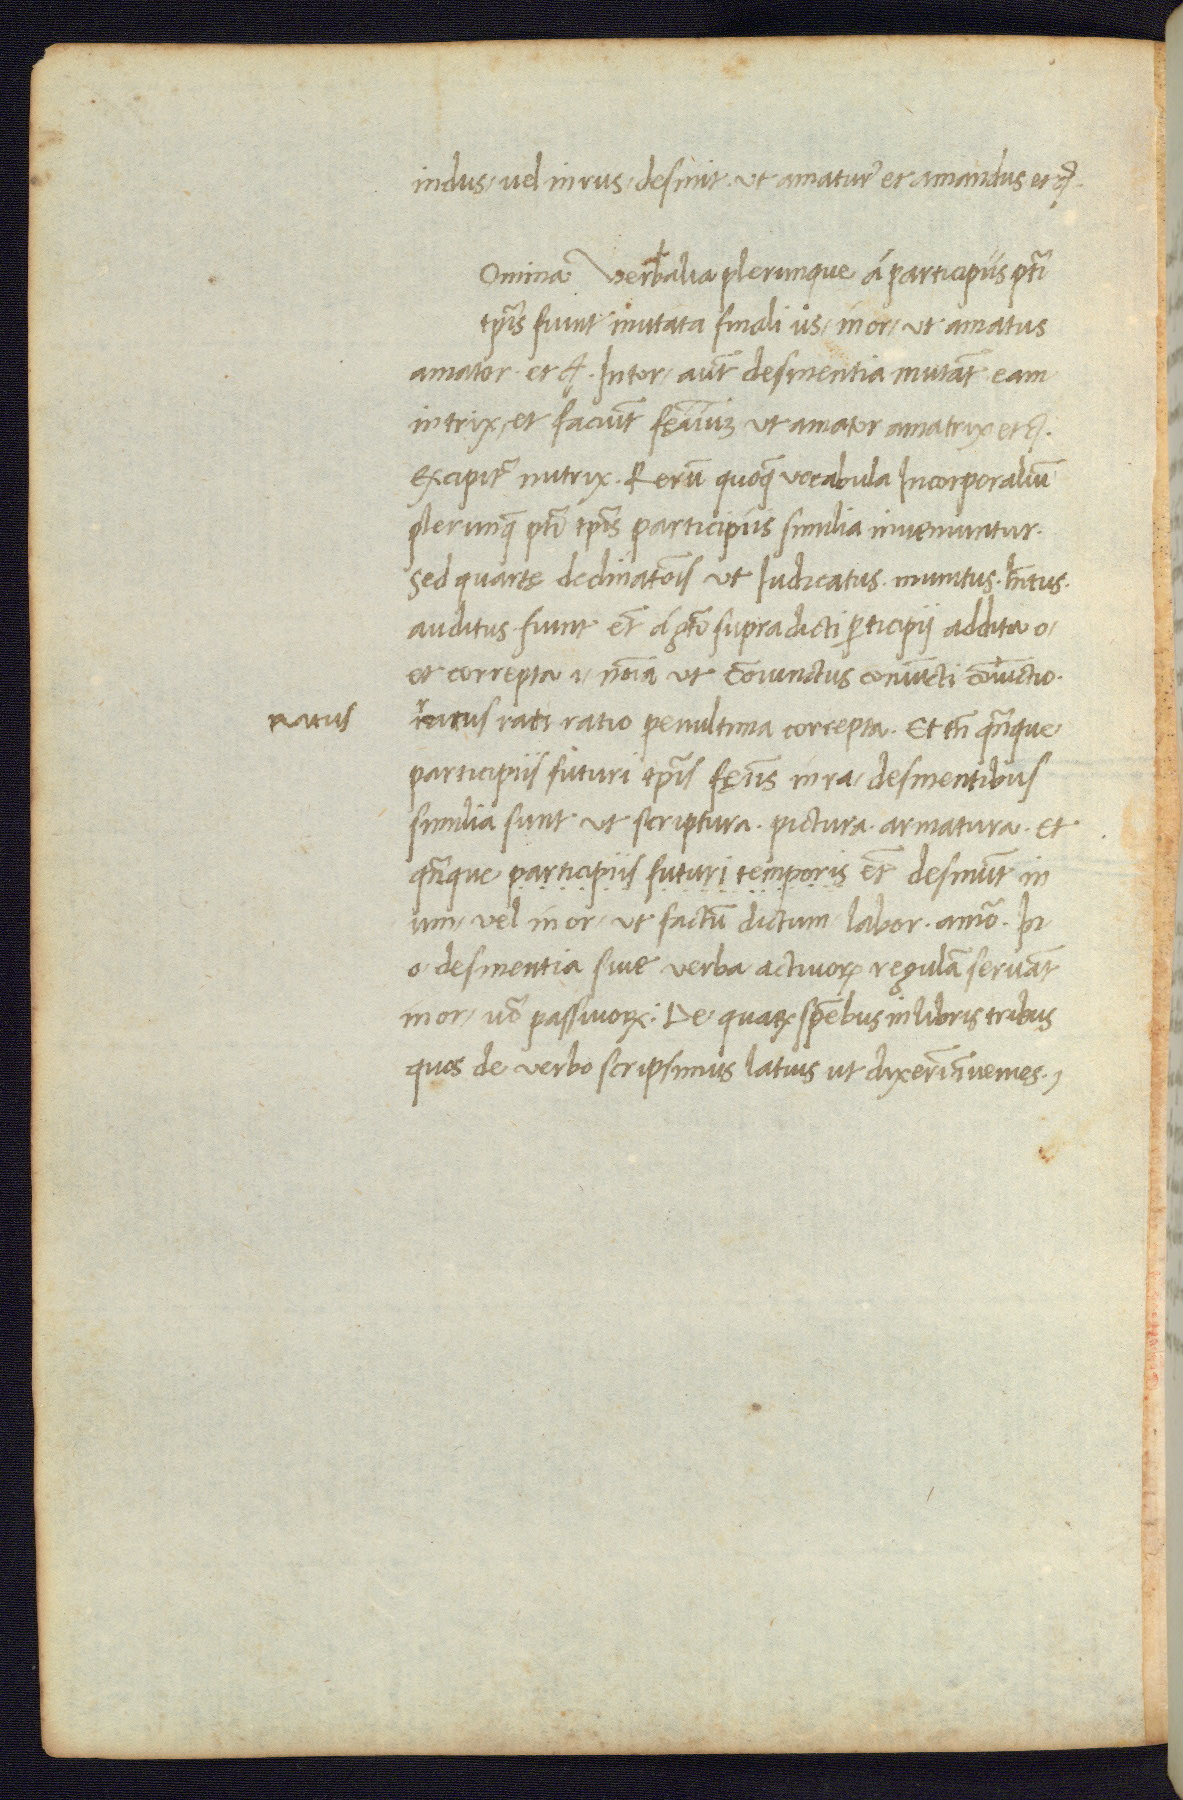 indus, uel in rus, desinit. ut amatur᾽ et amandus et c̃.
Omina Verbalia plerunque á participiis pt̃i
tp̃is fiunt mutata finali us, in or, ut amatus
amator. et c̃. In tor, aut̃ desinentia mutãt eam
in trix, et faciũt fẽiuũ ut amator amatrix et c̃.
Excipit᾽ nutrix. Rerũ quoq̃ vocabula Incorporaliũ
plerunq̃ pt̃i tp̃is participiis similia inueniuntur.
sed quartę declinatõis ut Iudicatus. munitus. hĩtus.
auditus. fiunt et̃ á gt̃o supradicti ꝑticipij addita o,
et correpta i, nõia ut cõiunctus coniũcti cõiũctio.
ratus
ratus rati ratio penultima correpta. Et tñ qñque
participiis futuri tp̃is fẽis in ra, desinentibus
similia sunt ut scriptura. pictura. armatura. Et
qñque participiis futuri temporis et̃ desinũt in
um, vel in or, ut factũ dictum labor. amõ. In
o desinentia siue verba actiuoꝝ regulã seruãt
in or, uõ passiuoꝝ: De quaꝝ spẽbus in libris tribus
quos de verbo scripsimus latius ut dixerĩ inuenies.